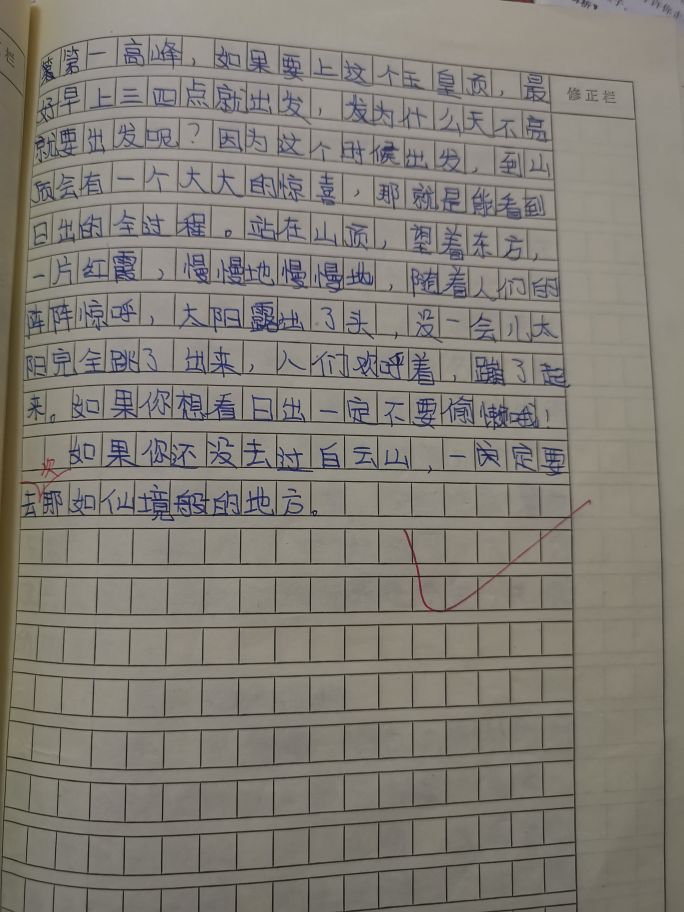 第一高峰，如果要上这个玉皇顶，最
修正栏
好早上三四点就出发，发为什么天不亮
就要出发呢？因为这个时候出发，到山
顶会有一个大大的惊喜，那就是能看到
日出的全过程。站在山顶，望着东方，
一片红霞，慢慢地慢慢地，随着人们的
阵阵惊呼，太阳露出了头，没一会儿太
阳完全跳了出来，人们欢呼着，蹦了起
来。如果你想看日出一定不要偷懒哦！
如果你还没去过白云山，一定要
次
去那如仙境般的地方。